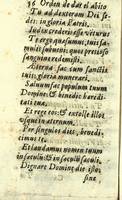 36 Orden de dar el abito
Tu ad dexteram Dei se-
des: in gloria Patris.
Iudex crederis esse ẽturus
Te ergo quæsumus, tuis fa-
mulis subueni: quos precioso
sanguine redemisti.
Æterna fac cum sanctis
tuis, gloria munerari.
Saluum fac populum tuum
Domine: & benedic hæredi-
tati tuæ.
Et rege eos: & extolle illos
vsque in æternum.
Per singulos dies, benedi-
cimus te.
Et laudamus nomen tuum
in sæculũ: & in sæculũ sæculi.
Dignare Domine die isto,
sine